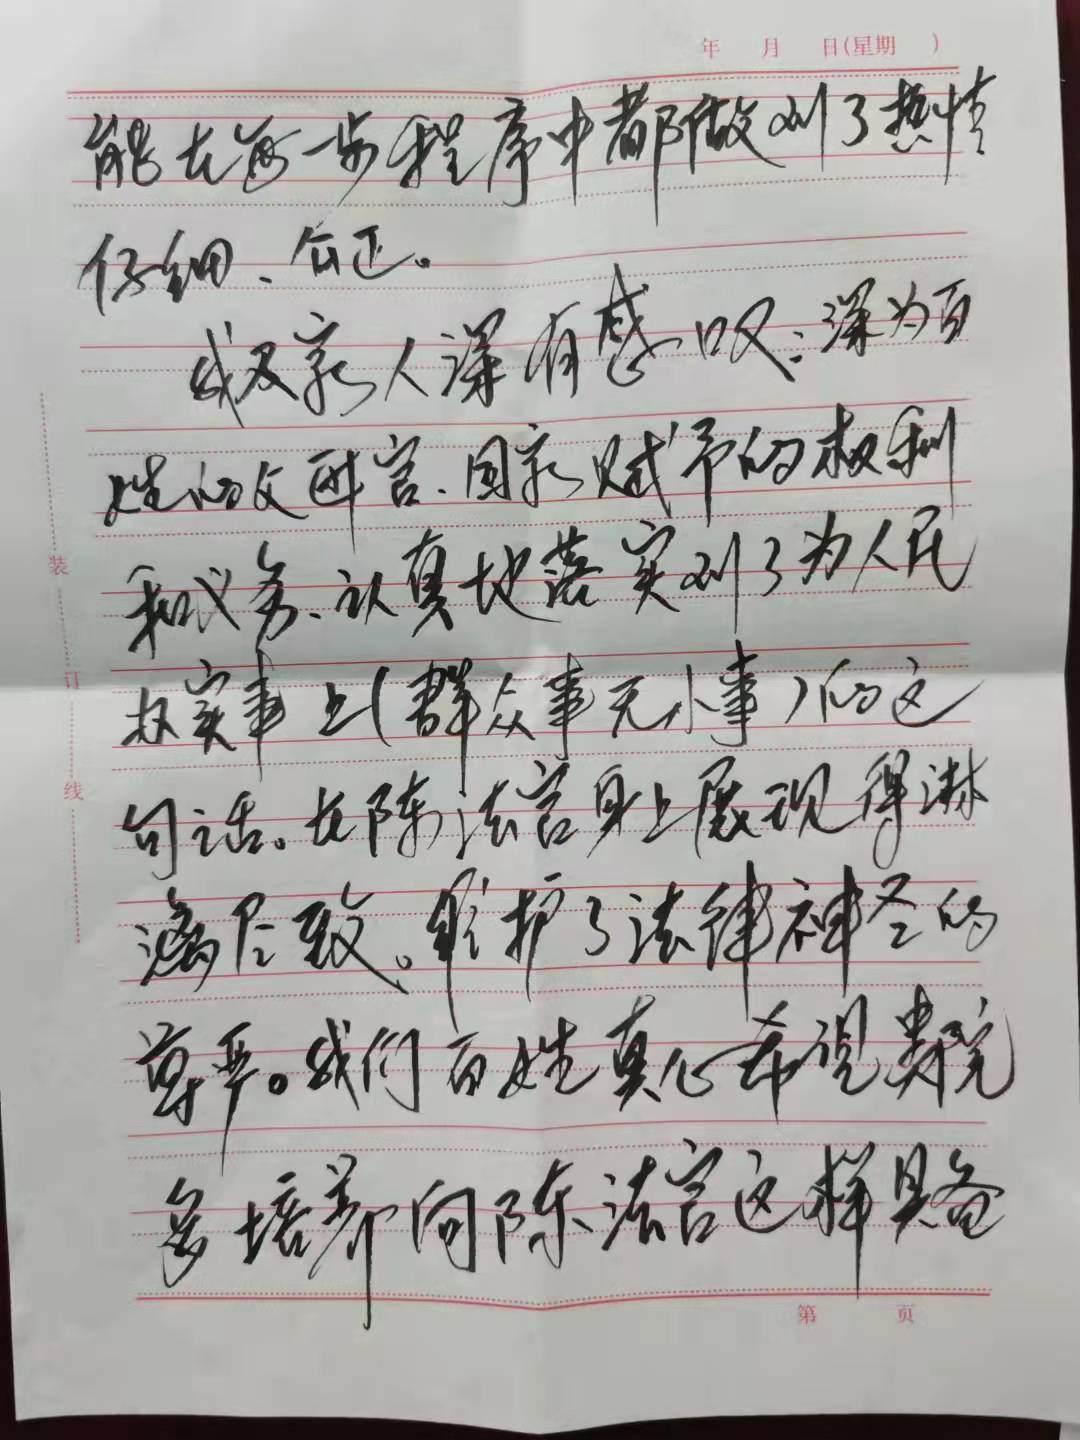 年 月 日(星期 )
能在每一步程序中都做到了热情
仔细、公正。
我及家人深有感叹:深为百
姓的父母官、国家赋予的权利
和义务、认真地落实到了为人民
办实事上(群众事无小事)的这
句话。在陈法官身上展现得淋
漓尽致。维护了法律神圣的
尊严。我们百姓真心希望贵院
多培养向陈法官这样具备
装
订
线
第 页